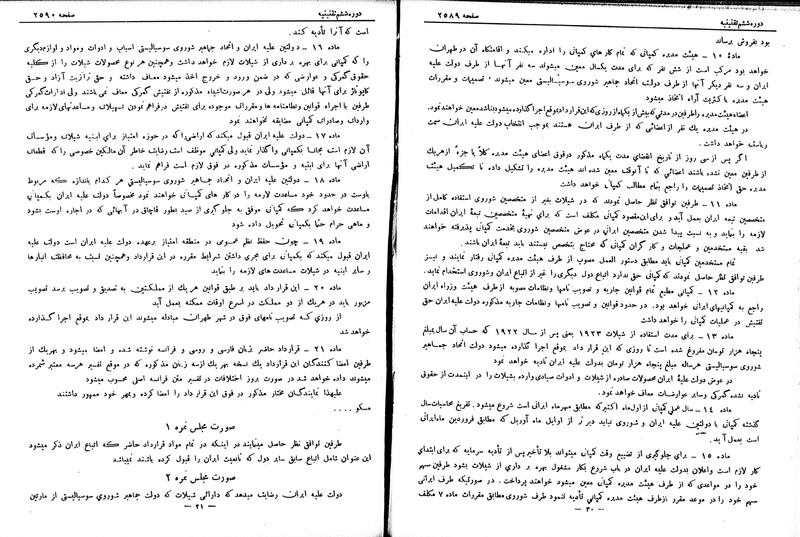 دوره ششم تقنینیه
صفحه ۲۵۸۹
بود بفروش برساند
ماده ۱۰ – هیئت مدیره کمپانی که تمام کارهای کمپانی را اداره میکند و اقامتگاه آن در طهران
خواهد بود مرکب است از شش نفر که برای مدت یکسال معین میشوند سه نفر آنها از طرف دولت علیه
ایران و سه نفر دیگر آنها از طرف دولت اتحاد جماهیر شوروی سوسیالیستی معین میشوند تصمیمات و مقررات
هیئت مدیره با کثریت آراء اتخاذ میشود
اعضاء هیئت مدیره را طرفین در مدتی که بیش از یکماه از روزی که این قرارداد بموقع اجرا گذارده میشود نباشد معین خواهند نمود.
در هیئت مدیره یك نفر از اعضائی که از طرف ایران هستند بموجب انتخاب دولت علیه ایران سمت
ریاست خواهد داشت.
اگر پس از سی روز از تاریخ انقضای مدت یکماه مذکور در فوق اعضای هیئت مدیره کلاً یا جزءً از هر یك
از طرفین معین نشده باشند اعضائی که تا آنوقت معین شده اند هیئت مدیره را تشکیل داده تا تکمیل هیئت
مدیره حق اتخاذ تصمیمات را راجع بتمام مطالب کمپانی خواهد داشت
ماده ۱۱ – طرفین توافق نظر حاصل نمودند که در شیلات بقدر از متخصصین شوروی استفاده کامل از
متخصصین تبعه ایران بعمل آید و برای این مقصود کمپانی مکلف است که برای تهیهٔ متخصصین تبعهٔ ایران اقدامات
لازمه را بنماید و به نسبت پیدا شدن متخصصین ایرانی در عوض متخصصین شوروی بخدمت کمپانی پذیرفته خواهند
شد بقیه مستخدمین و عملجات و کار گران کمپانی که محتاج بتخصص نیستند باید تبعهٔ ایران باشند.
تمام مستخدمین کمپانی باید مطابق دستور العمل مصوب از طرف هیئت مدیره کمپانی رفتار نمایند و نیز
طرفین توافق نظر حاصل نمودند که کمپانی حق ندارد اتباع دول دیگری را غیر از اتباع ایران و شوروی استخدام نماید.
ماده ۱۲ – کمپانی مطیع تمام قوانین جاریه و تصویب نامها و نظامات مصوبه از طرف هیئت وزراء ایران
راجع به کمپانیهای ایرانی خواهد بود. در حدود قوانین و تصویب نامها و نظامات جاریه مذکوره دولت علیه ایران حق
تفتیش در عملیات کمپانی را خواهد داشت
ماده ۱۳ – برای مدت استفاده از شیلات ۱۹۲۳ یعنی پس از سال ۱۹۲۲ که حساب آن سال بمبلغ
پنجاه هزار تومان مفروغ شده است تا روزی که این قرار داد بموقع اجرا گذارده میشود دولت اتحاد جماهیر
شوروی سوسیالیستی هرساله مبلغ پنجاه هزار تومان بدولت علیه ایران تادیه خواهد نمود
در عوض دولت علیهٔ ایران محصولات صادره از شیلات و ادوات صیادی وارده بشیلات را در اینمدت از حقوق
تادیه نشده گمرکی و سایر عوارضات معاف خواهد نمود.
ماده ۱۴ – سال عملی کمپانی از اول ماه اکتبر که مطابق مهر ماه ایرانی است شروع میشود. تفریغ محاسبات سال
گذشته کمپانی با دولتین علیه ایران و شوروی نباید دیر تر از اوایل ماه آوریل که مطابق فروردین ماه ایرانی
است بعمل آید.
ماده ۱۵ – برای جلوگیری از تضییع وقت کمپانی میتواند بلا تأخیر پس از تأدیه سرمایه که برای ابتدای
کار لازم است و اعلان بدولت علیه ایران در باب شروع بکار مشغول بهره بر داری از شیلات بشود طرفین سهم
خود را در مواعدی که از طرف هیئت مدیره کمپانی معین میشود خواهند پرداخت. در صورتیکه طرف ایرانی
سهم خود را در موعد مقرر از طرف هیئت مدیره کمپانی تأدیه ننمود طرف شوروی مطابق مقررات ماده ۷ مکلف
– ۳۰ –
دوره ششم تقنینیه
صفحه ۲۵۹۰
است که آنرا تأدیه کند.
ماده ۱۶ – دولتین علیه ایران و اتحاد جماهیر شوروی سوسیالیستی اسباب و ادوات و مواد و لوازم دیگری
را که کمپانی برای بهره برداری از شیلات لازم خواهد داشت وهمچنین هر نوع محصولات شیلات را از کلیه
حقوق گمرکی و عوارضی که در ضمن ورود و خروج اخذ میشود معاف داشته و حق ترانزیت آزاد و حق
کابوتاژ برای آنها قائل میشود ولی در هر صورت اشیاء مذکوره از تفتیش گمرکی معاف نمی باشند ولی ادارات گمرکی
طرفین با اجراء قوانین ونظامنامه ها و مقررات موجوده برای تفتیش در فراهم نمودن تسهیلات و مساعدتهای لازمه برای
واردات وصادرات کمپانی مضایقه نخواهند نمود
ماده ۱۷ – دولت علیه ایران قبول میکند که اراضی را که در حوزه امتیاز برای ابنیه شیلات ومؤسسات
آن لازم است مجاناً بکمپانی واگذار نماید ولی کمپانی موظف است رضایت خاطر آن مالکین خصوصی را که قطعات
اراضی آنها برای ابنیه و مؤسسات مذکوره در فوق لازم است فراهم نماید.
ماده ۱۸ – دولت علیه ایران و اتحاد جماهیر شوروی سوسیالیستی هر کدام باندازه که مربوط
باوست در حدود خود مساعدت لازمه را در کار های کمپانی خواهند نمود مخصوصاً دولت علیه ایران بکمپانی
مساعدت خواهد کرد که کمپانی موفق به جلو گیری از صید بطور قاچاق در آبهائی که در اجاره اوست بشود
و ماهی حرام حتماً بکمپانی تحویل داده شود
ماده ۱۹ – چون حفظ نظم عمومی در منطقه امتیاز برعهده دولت علیه ایران است دولت علیه
ایران قبول میکند که بکمپانی برای مجری داشتن شرایط مقرره در این قرارداد وهمچنین نسبت به محافظت انبارها
و سایر ابنیه در شیلات مساعدت های لازمه را بنماید
ماده ۲۰ – این قرار داد باید بر طبق قوانین هر یك از مملکتین به تصدیق و تصویب برسد تصویب
مزبور باید در هر یك از دو مملکت در اسرع اوقات ممکنه بعمل آید
از روزی که تصویب نامه‌های فوق در شهر طهران مبادله میشوند این قرار داد بموقع اجرا گذارده
خواهد شد
ماده ۲۱ – قرارداد حاضر بزبان فارسی و روسی و فرانسه نوشته شده و امضا میشود و بهریك از
طرفین امضا کنندگان این قرارداد یك نسخه بهر یك از سه زبان مذکوره که در موقع تفسیر هر سه معتبر شمرده
میشوند داده خواهد شد در صورت بروز اختلافات در تفسیر متن فرانسه اصلی محسوب میشود
علیهذا نمایندگان مختار مذکور در فوق این قرارداد را امضا کرده و بمهر خود ممهور داشتند
مسکو ....
صورت مجلس نمره ۱
طرفین توافق نظر حاصل مینمایند در اینکه در تمام مواد قرارداد حاضر که اتباع ایران ذکر میشود
این عنوان شامل اتباع سابق سایر دول که تابعیت ایران را قبول کرده باشند نمیباشد
صورت مجلس نمره ۲
دولت علیه ایران رضایت میدهد که دارائی شیلات که دولت جماهیر شوروی سوسیالیستی از مارتین
– ۳۱ –